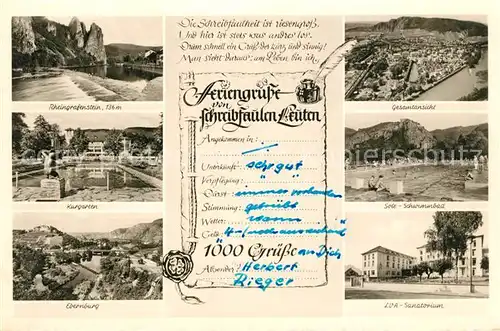 Die Schreibfaulheit ist riesengroß,
Und hier ist stets was andres los.
Drum schnell ein Gruß, der kurz und sinnig!
Man sieht daraus: am Leben bin ich.
Feriengrüße
von
schreibfaulen Leuten
Angekommen in:
Unterkunft: sehr gut
Verpflegung: " "
Durst: immer vorhanden
Stimmung:
Wetter: warm
Geld:
1000 Grüße an Dich
Absender: Herbert
Rieger
Rheingrafenstein, 136 m
Kurgarten
Ebernburg
Gesamtansicht
Sole-Schwimmbad
LVA-Sanatorium